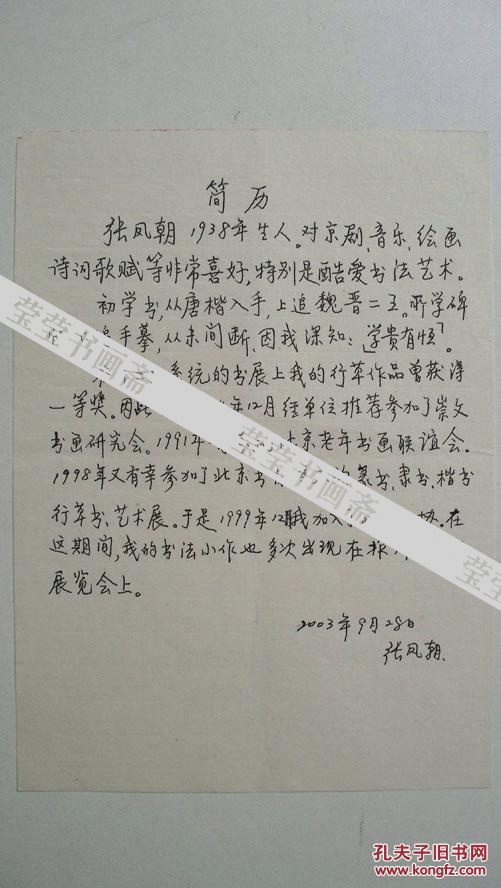 简历
张凤朝 1938年生人。对京剧、音乐、绘画
诗词歌赋等非常喜好,特别是酷爱书法艺术。
初学书,从唐楷入手,上追魏晋二王。所学碑
手摹,从未间断,因我深知:「学贵有恒」。
系统的书展上我的行草作品曾获得
一等奖。因此 年12月经单位推荐参加了崇文
书画研究会。1991年 北京老年书画联谊会。
1998年又有幸参加了北京书 篆书、隶书、楷书
行草书、艺术展。于是1999年12月我加入 协。在
这期间,我的书法小作也多次出现在报
展览会上。
2003年9月28日
张凤朝.
莹莹书画斋
莹莹书画斋
孔夫子旧书网
www.kongfz.com